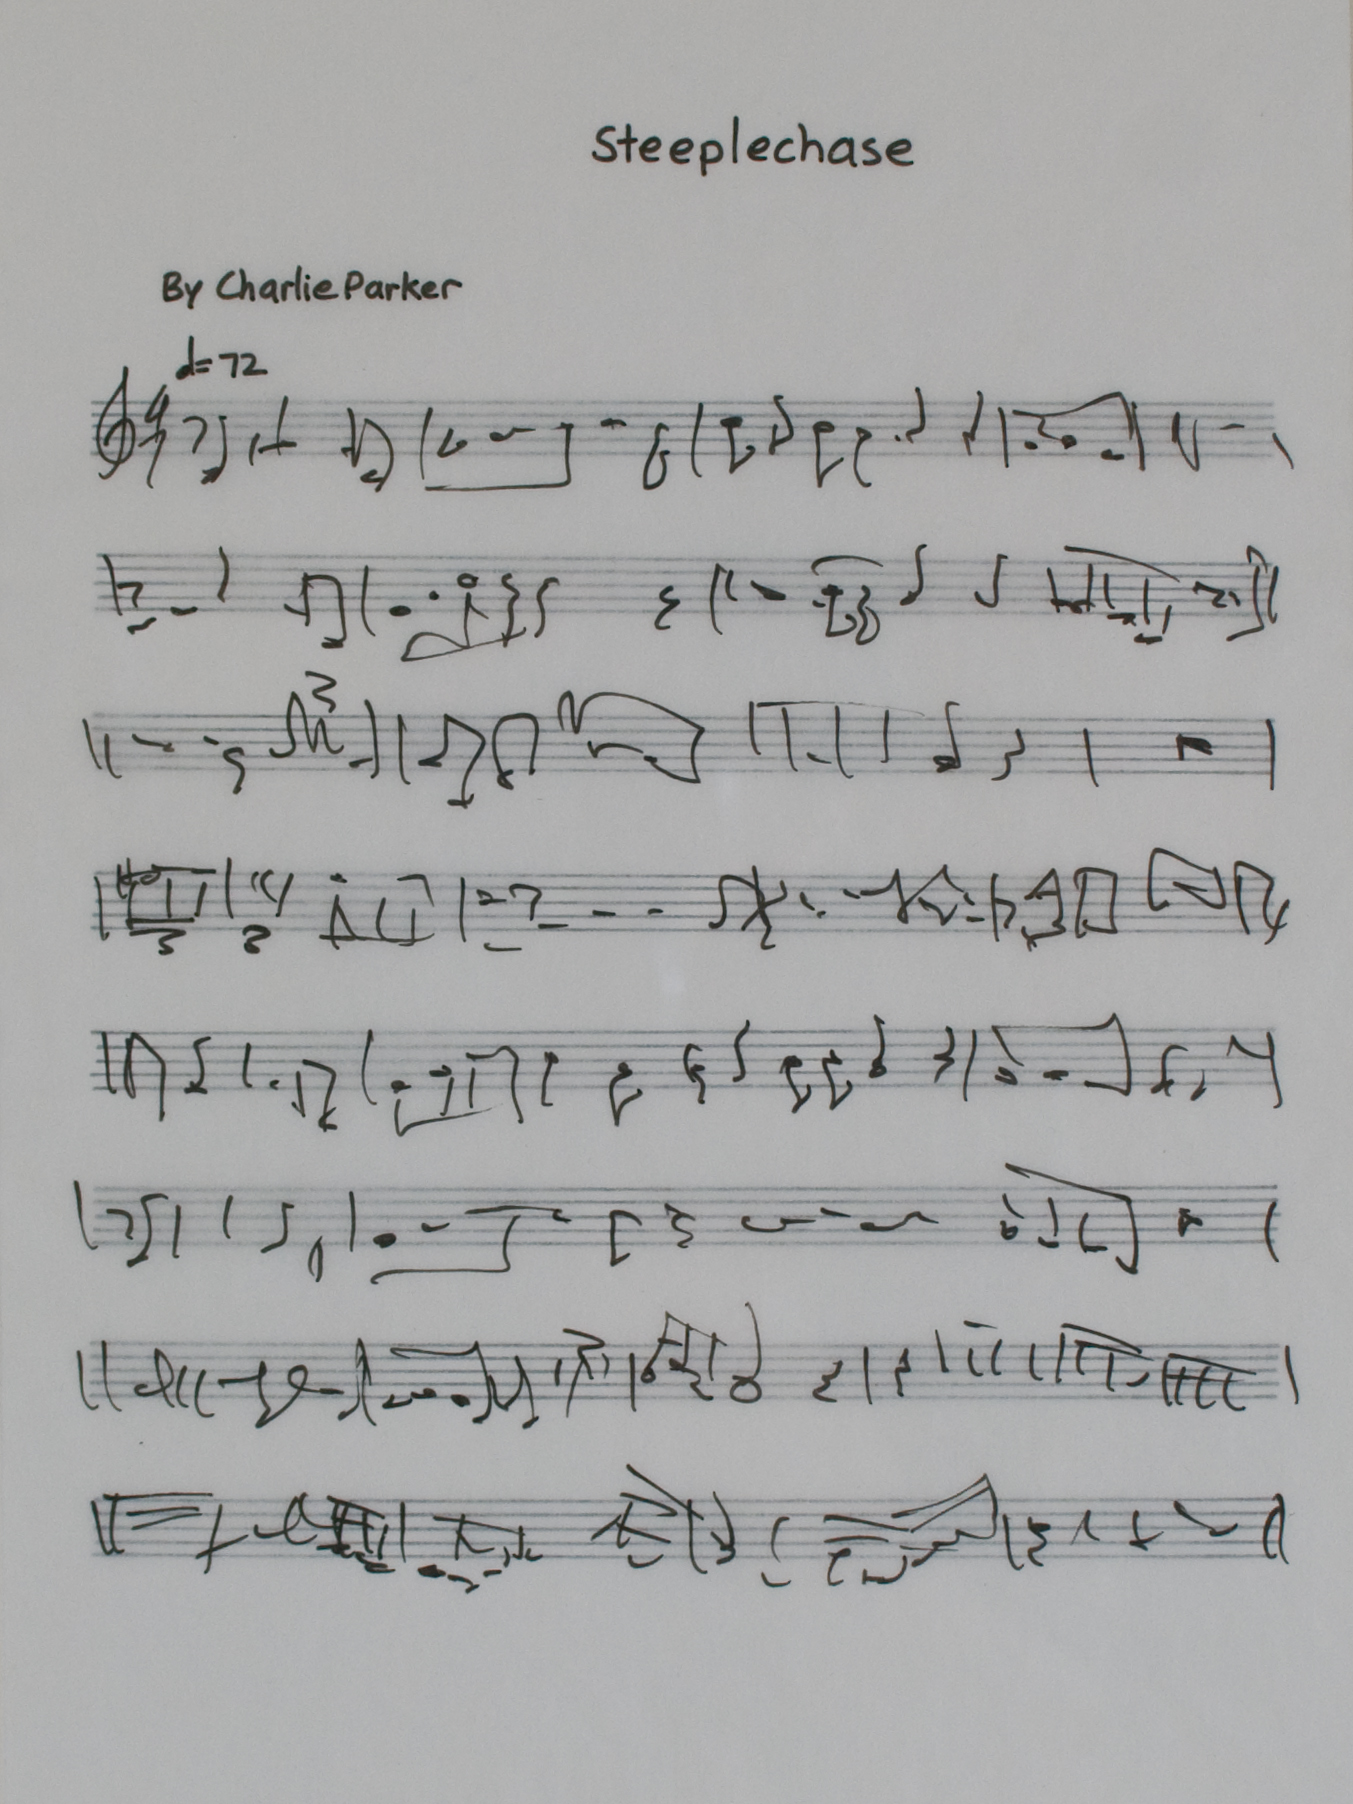 Steeplechase
By Charlie Parker
d=72
3
3 3